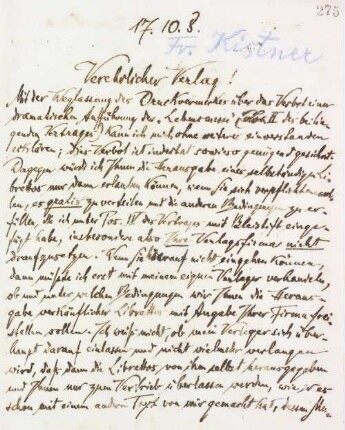 275
17.10.8.
Fr. Kistner
Verehrlicher Verlag!
Mit der Weglassung des Druckvermerkes über das Verbot einer
dramatischen Aufführung der „Lebensmesse“ II des beilie-
genden Vertrages kann ich mich ohne weiteres einverstanden
erklären; Ihr Verbot ist indertat sowieso genügend gesichert.
Dagegen würde ich Ihnen die Herausgabe eines selbständigen Li-
brettos nur dann erlauben können, wenn Sie sich verpflichten wol-
len, es gratis zu verteilen und die anderen Bedingungen zu er-
füllen, die ich unter Pos. IV des Vertrages mit Bleistift einge-
fügt habe, insbesondere also Ihre Verlagsfirma nicht
draufzusetzen. Wenn Sie darauf nicht eingehen können,
dann müßte ich erst mit meinem eignen Verleger verhandeln,
ob und unter welchen Bedingungen wir Ihnen die Heraus-
gabe verkäuflicher Librettos mit Angabe Ihrer Firma frei-
stellen wollen. Ich weiß nicht, ob mein Verleger sich über-
haupt darauf einlassen und nicht vielmehr verlangen
wird, daß dann die Librettos von ihm selbst herausgegeben
und Ihnen nur zum Vertrieb überlassen werden, wie er es
schon mit einem andern Text von mir gemacht hat, dessen